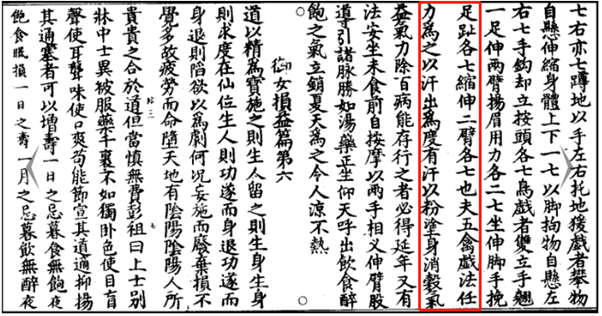 七右亦七蹲地以手左右托地猨戲者攀物
自懸伸縮身體上下一七以脚拘物自懸左
右七手鈎却立按頭各七鳥戲者雙立手翹
一足伸兩臂揚眉用力各二七坐伸脚手挽
足趾各七縮伸二臂各七也夫五禽戲法任
力為之以汗出為度有汗以粉塗身消穀氣
益氣力除百病能存行之者必得延年又有
法安坐未食前自按摩以兩手相叉伸臂股
導引諸脉勝如湯藥正坐仰天呼出飲食醉
飽之氣立銷夏天為之令人涼不熱
御女損益篇第六
道以精為寶施之則生人留之則生身生身
則求度在仙位生人則功遂而身退功遂而
身退則陷欲以為劇何況妄施而廢棄損不
覺多故疲勞而命墮天地有陰陽陰陽人所
貴貴之合於道但當慎無費彭祖曰上士別
牀中士異被服藥千裹不如獨卧色使目盲
聲使耳聾味使口爽苟能節宣其道適抑揚
其通塞者可以增壽一日之忌暮食無飽夜
飽食眠損一日之壽一月之忌暮飲無醉夜